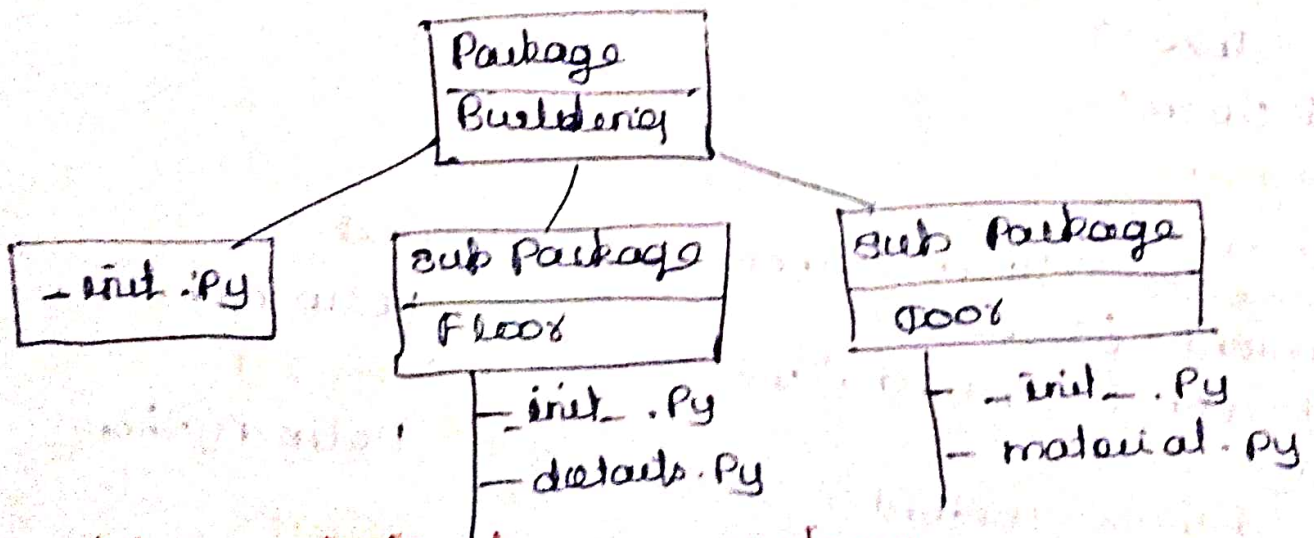 Package
Building
_init.py
Sub Package
Floor
_init_.py
details.py
Sub Package
Door
_init_.py
material.py